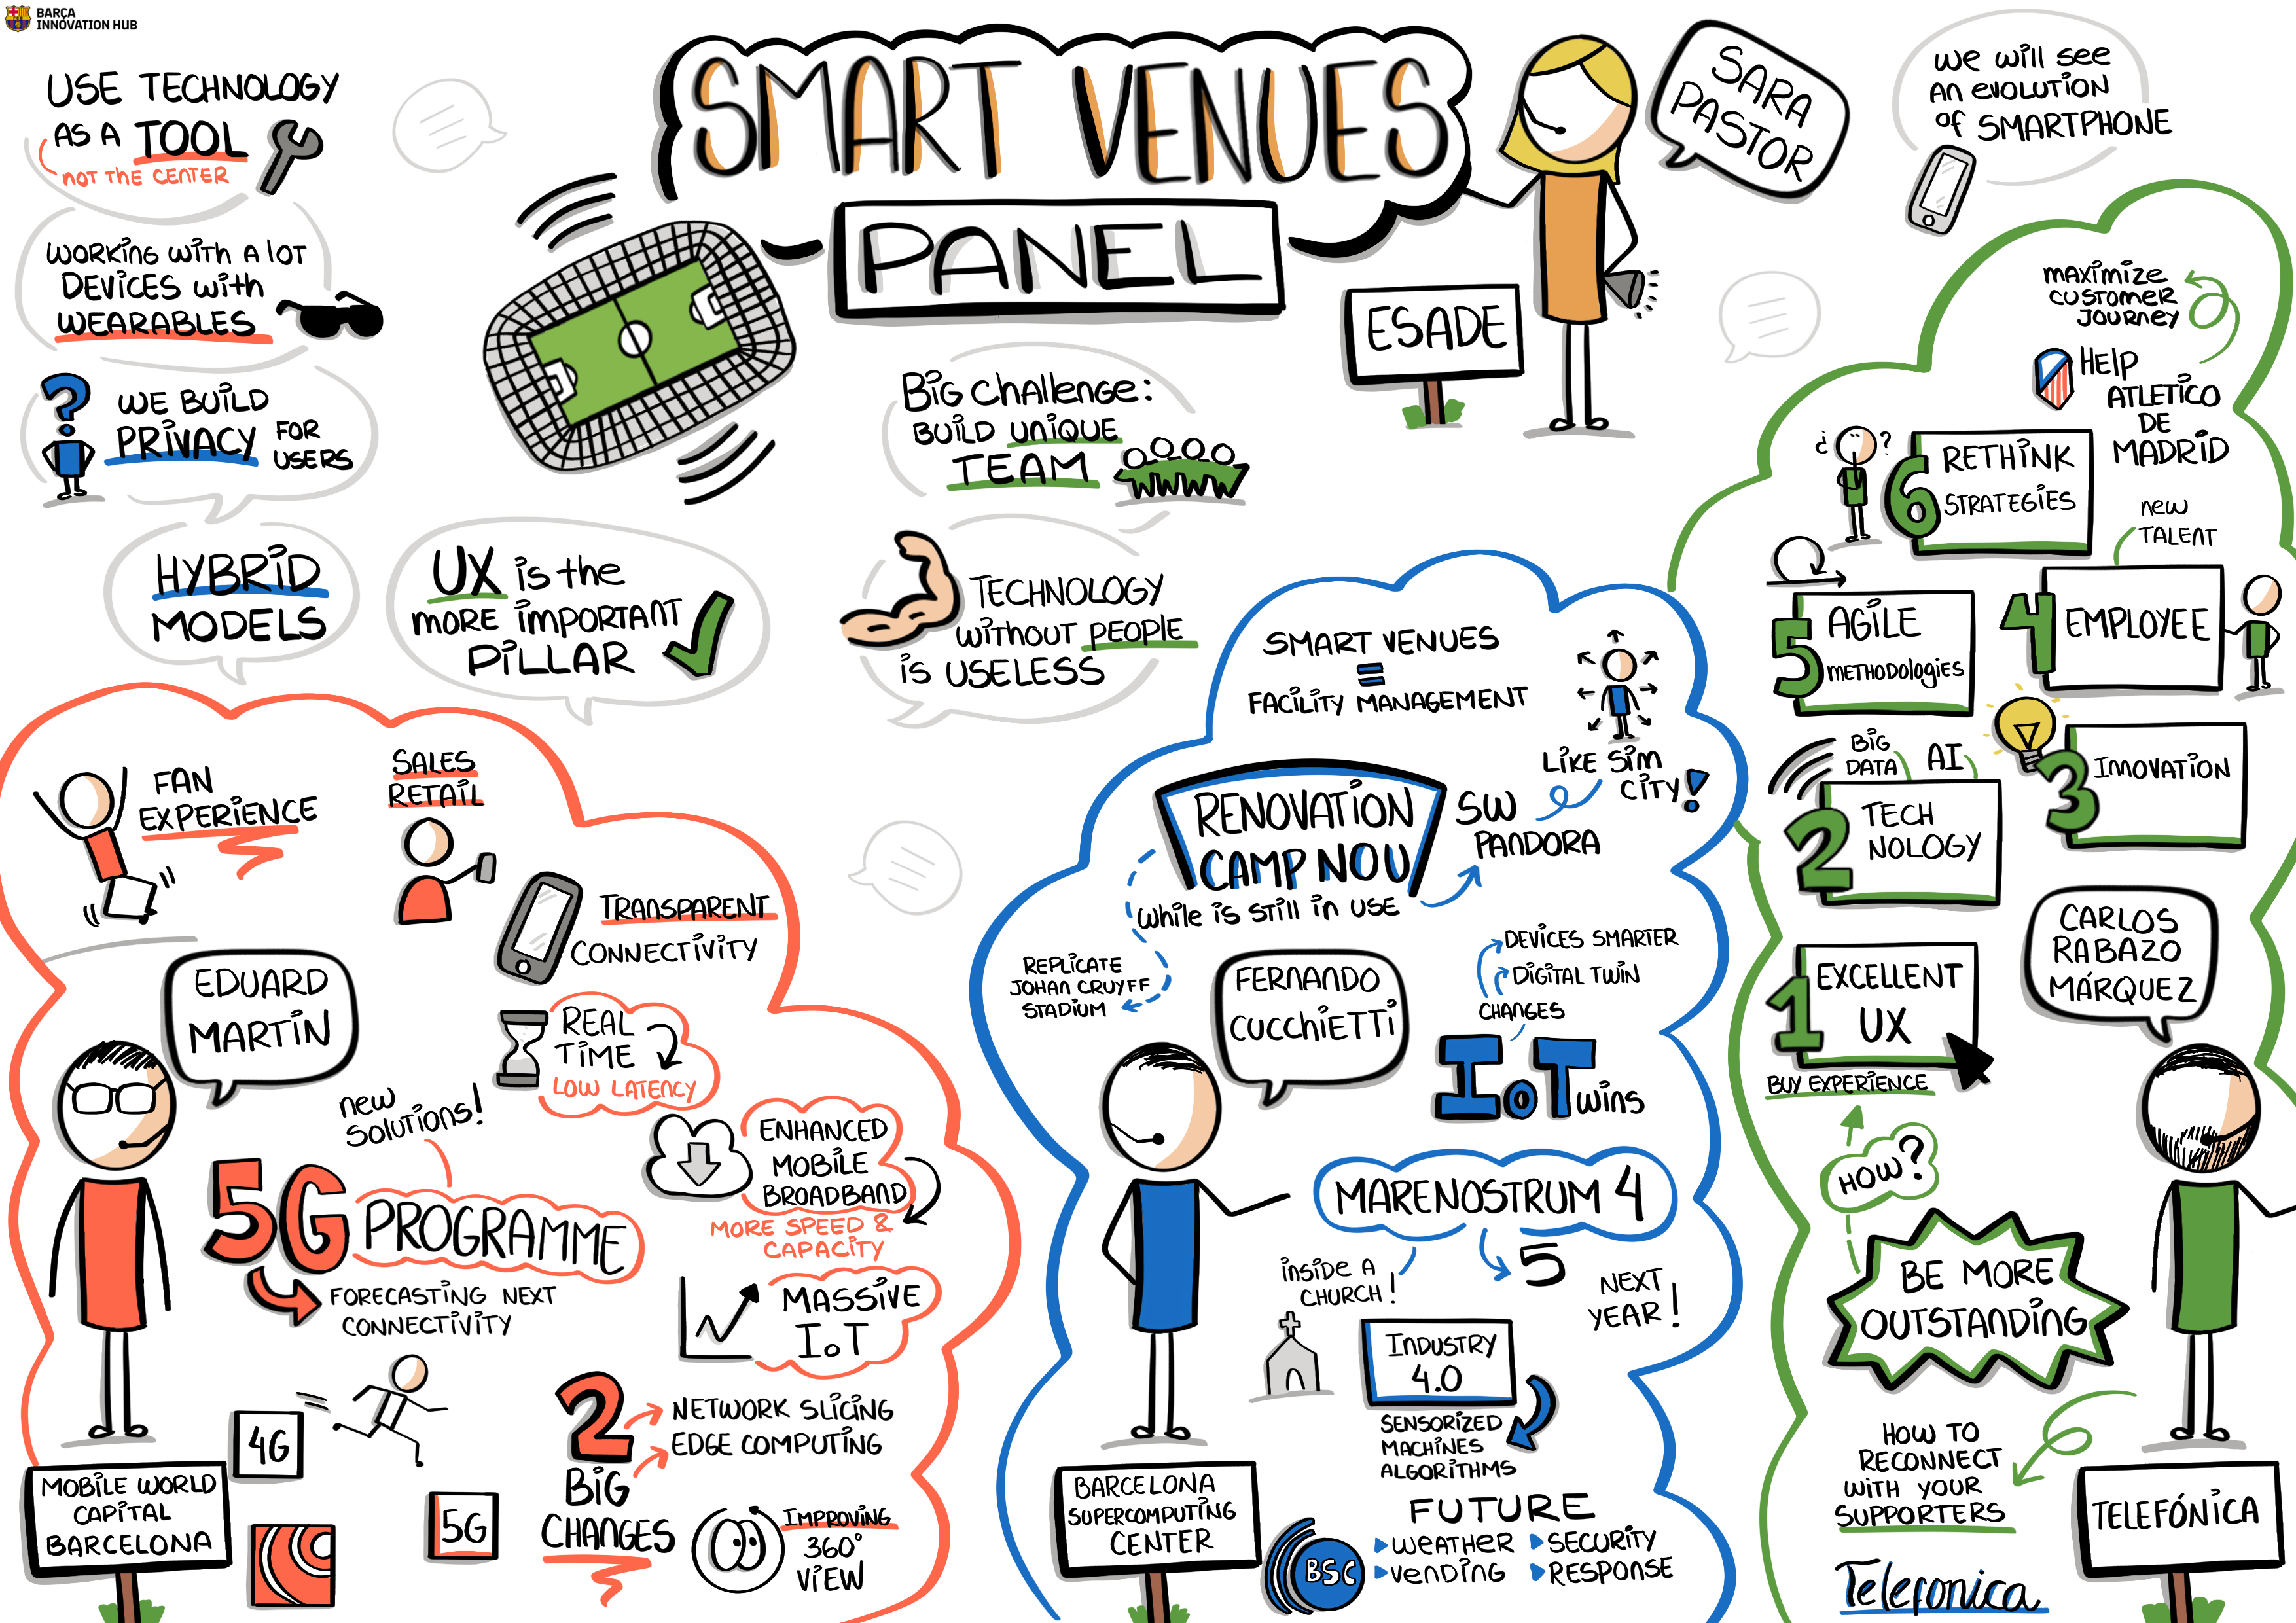 BARÇA
INNOVATION HUB
USE TECHNOLOGY
AS A TOOL
NOT THE CENTER
WORKING WITH A LOT
DEVICES WITH
WEARABLES
WE BUILD
PRIVACY FOR
USERS
HYBRID
MODELS
UX is the
MORE IMPORTANT
PILLAR
SMART VENUES
PANEL
SARA
PASTOR
ESADE
WE WILL SEE
AN EVOLUTION
OF SMARTPHONE
BIG CHALLENGE:
BUILD UNIQUE
TEAM
TECHNOLOGY
WITHOUT PEOPLE
IS USELESS
FAN
EXPERIENCE
SALES
RETAIL
TRANSPARENT
CONNECTIVITY
EDUARD
MARTIN
REAL
TIME
LOW LATENCY
NEW
SOLUTIONS!
ENHANCED
MOBILE
BROADBAND
MORE SPEED &
CAPACITY
5G PROGRAMME
FORECASTING NEXT
CONNECTIVITY
MASSIVE
IoT
4G
5G
2
BIG
CHANGES
NETWORK SLICING
EDGE COMPUTING
IMPROVING
360°
VIEW
MOBILE WORLD
CAPITAL
BARCELONA
SMART VENUES
=
FACILITY MANAGEMENT
LIKE SIM
CITY!
RENOVATION
CAMP NOU
WHILE IS STILL IN USE
SW
PANDORA
REPLICATE
JOHAN CRUYFF
STADIUM
FERNANDO
CUCCHIETTI
DEVICES SMARTER
DIGITAL TWIN
CHANGES
IoTwins
MARENOSTRUM 4
5
INSIDE A
CHURCH!
NEXT
YEAR!
INDUSTRY
4.0
SENSORIZED
MACHINES
ALGORITHMS
FUTURE
WEATHER
SECURITY
VENDING
RESPONSE
BSC
BARCELONA
SUPERCOMPUTING
CENTER
MAXIMIZE
CUSTOMER
JOURNEY
HELP
ATLETICO
DE
MADRID
¿ ?
6 RETHINK
STRATEGIES
NEW
TALENT
5 AGILE
METHODOLOGIES
4 EMPLOYEE
BIG
DATA
AI
3 INNOVATION
2 TECH
NOLOGY
1 EXCELLENT
UX
BUY EXPERIENCE
CARLOS
RABAZO
MÁRQUEZ
HOW?
BE MORE
OUTSTANDING
HOW TO
RECONNECT
WITH YOUR
SUPPORTERS
Telefonica
TELEFÓNICA